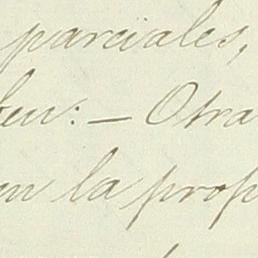 parciales,
: — Otra
la prop